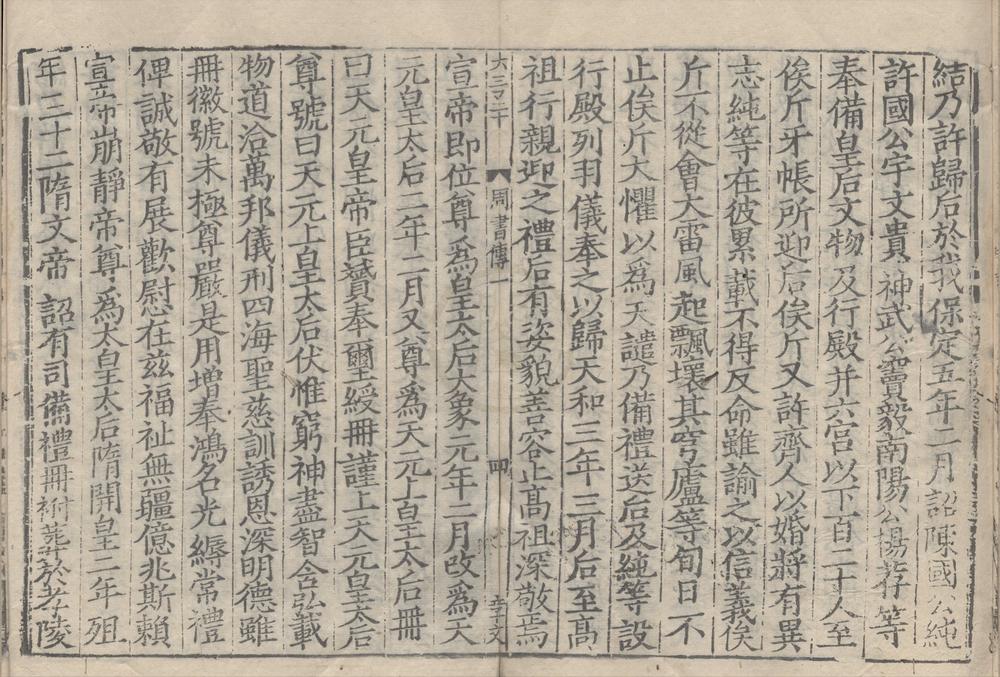 結乃許歸后於我保定五年二月詔陳國公純
許國公宇文貴神武公竇毅南陽公楊荐等
奉備皇后文物及行殿并六宮以下百二十人至
俟斤牙帳所迎后俟斤又許齊人以婚將有異
志純等在彼累載不得反命雖諭之以信義俟
斤不從會大雷風起飄壞其穹廬等旬日不
止俟斤大懼以為天譴乃備禮送后及純等設
行殿列羽儀奉之以歸天和三年三月后至高
祖行親迎之禮后有姿貌善容止高祖深敬焉
大三丁 周書傳一 四
宣帝即位尊為皇太后大象元年二月改為天
元皇太后二年二月又尊為天元上皇太后冊
曰天元皇帝臣贇奉璽綬冊謹上天元皇太后
尊號曰天元上皇太后伏惟窮神盡智含弘載
物道洽萬邦儀刑四海聖慈訓誘恩深明德雖
冊徽號未極尊嚴是用增奉鴻名光縟常禮
俾誠敬有展歡慰在茲福祉無疆億兆斯賴
宣帝崩靜帝尊為太皇太后隋開皇二年殂
年三十二隋文帝詔有司備禮冊祔葬於孝陵